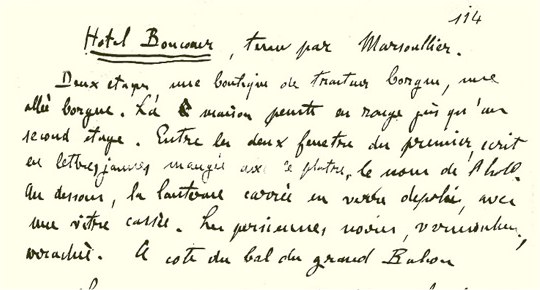 114
Hotel Boncœur, tenu par Marsoullier.
Deux étages, une boutique de traiteur borgne, une
allée borgne. La maison peinte en rouge jusqu'au
second étage. Entre les deux fenetre du premier, écrit
en lettres jaunes mangée avec le platre, le nom de l'hotel.
Au dessous, la lanterne carrée en verre depoli, avec
une vitre cassée. Les persiennes noires, vermoulues,
A coté du bal du grand Balcon